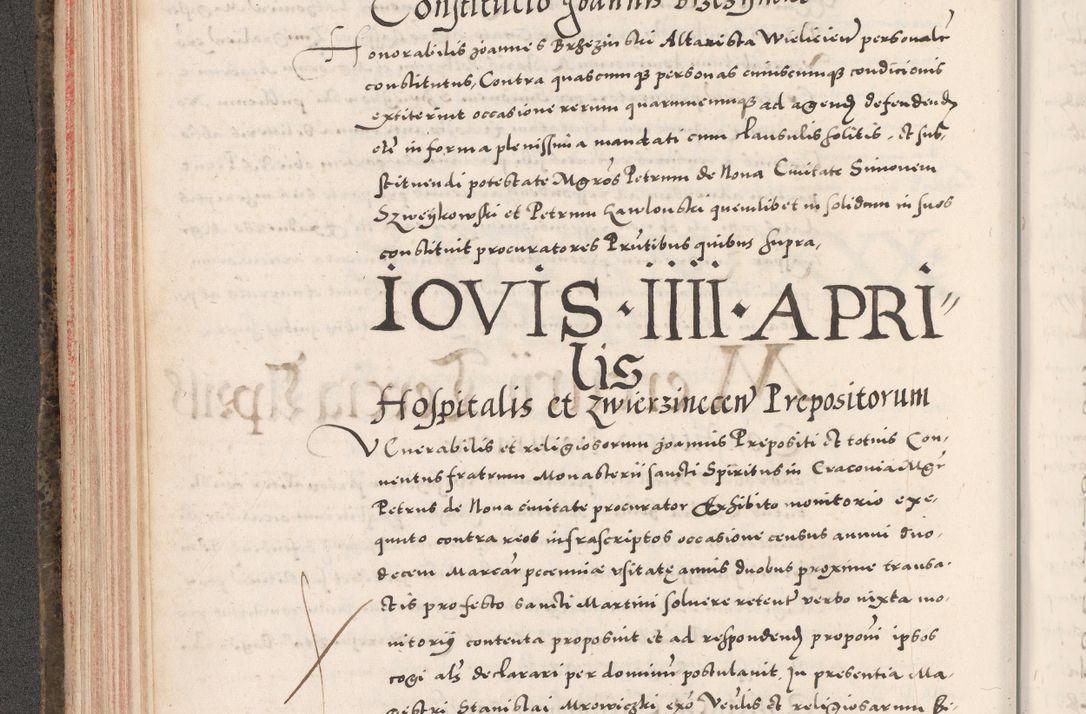 Constitucio Joannis Brzezinski
Honorabilis Joannes Brzezinski Altarista Wieliciens personalr
constitutus, Contra quascumq personas cuiuscumq condicionis
extiterint occasione rerum quarumcumq ad agend defendend
etc in forma plenissima mandati cum clausulis solitis, Et sub,
stituendi potestate Mgros Petrum de Nova Civitate Simonem
Szweykowski et Petrum Hawlouski quemlibet in solidum in suos
constituit procuratores Prntibus quibus supra,
IOVIS · IIII · APRI"
lis
Hospitalis et Zwierzinecen Prepositorum
Venerabilis et religiosorum Joannis Prepositi Et totius Con,
uentus fratrum Monasterii sancti Spiritus in Cracouia Mgr
Petrus de Noua ciuitate procurator Exhibito monitorio exe,
quuto contra reos infrascriptos occasione census annui duo,
decem Marcar pecuniæ vsitatę annis duobus proxime transa,
ctis pro festo sancti Martini soluere retent verbo iuxta mo,
nitorij contenta proposuit et ad respondend proponi ipsos
cogi als declarari per dominum postulauit, In presentia Ma,
gestri Stanislai Mrowiczki Venlis et religiosarum